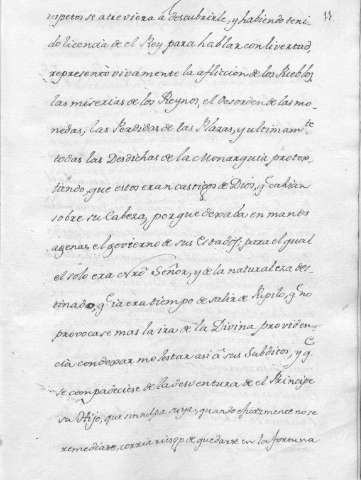 respetos se atreviera à descubrirle, y habiendo teni
do licencia de el Rey para hablar con livertad,
representò vivamente la afliccion de los Pueblos,
las miserias de los Reynos, el desorden de las mo
nedas, las Perdidas de las Plazas, y ultimamte
todas las Desdichas de la Monarquia protex
tando, que estos eran castigos de Dios, q̃ cahian
sobre su Cabeza, porque dexada en manos
agenas el govierno de sus Estados, para el qual
el solo era Señor, y de la naturaleza des
tinado, q̃ ià era tiempo de salir de Pupilo, q̃ no
provocase mas la ira de la Divina providen
cia con dexar molestar asi à sus Subditos, y q̃
se compadeciese de la desventura de el Principe
su Hijo, que sin culpa suya, quando eficazmente no se
remediase, corria riesgo de quedarse en la fortuna